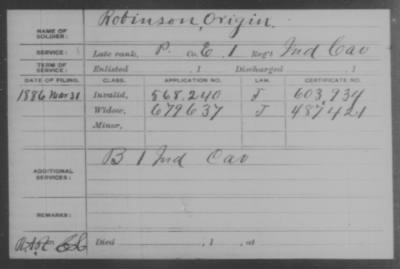 Robinson, Origin.
NAME OF SOLDIER:
SERVICE: Late rank, P. Co. E, 1 Reg't Ind Cav
TERM OF SERVICE: Enlisted , 1 Discharged , 1
DATE OF FILING. CLASS. APPLICATION NO. LAW. CERTIFICATE NO.
1886 Mar 31 Invalid, 568,240 J 603,934
Widow, 679637 J 487421
Minor,
B 1 Ind Cav
ADDITIONAL SERVICES:
REMARKS:
Died , 1 , at